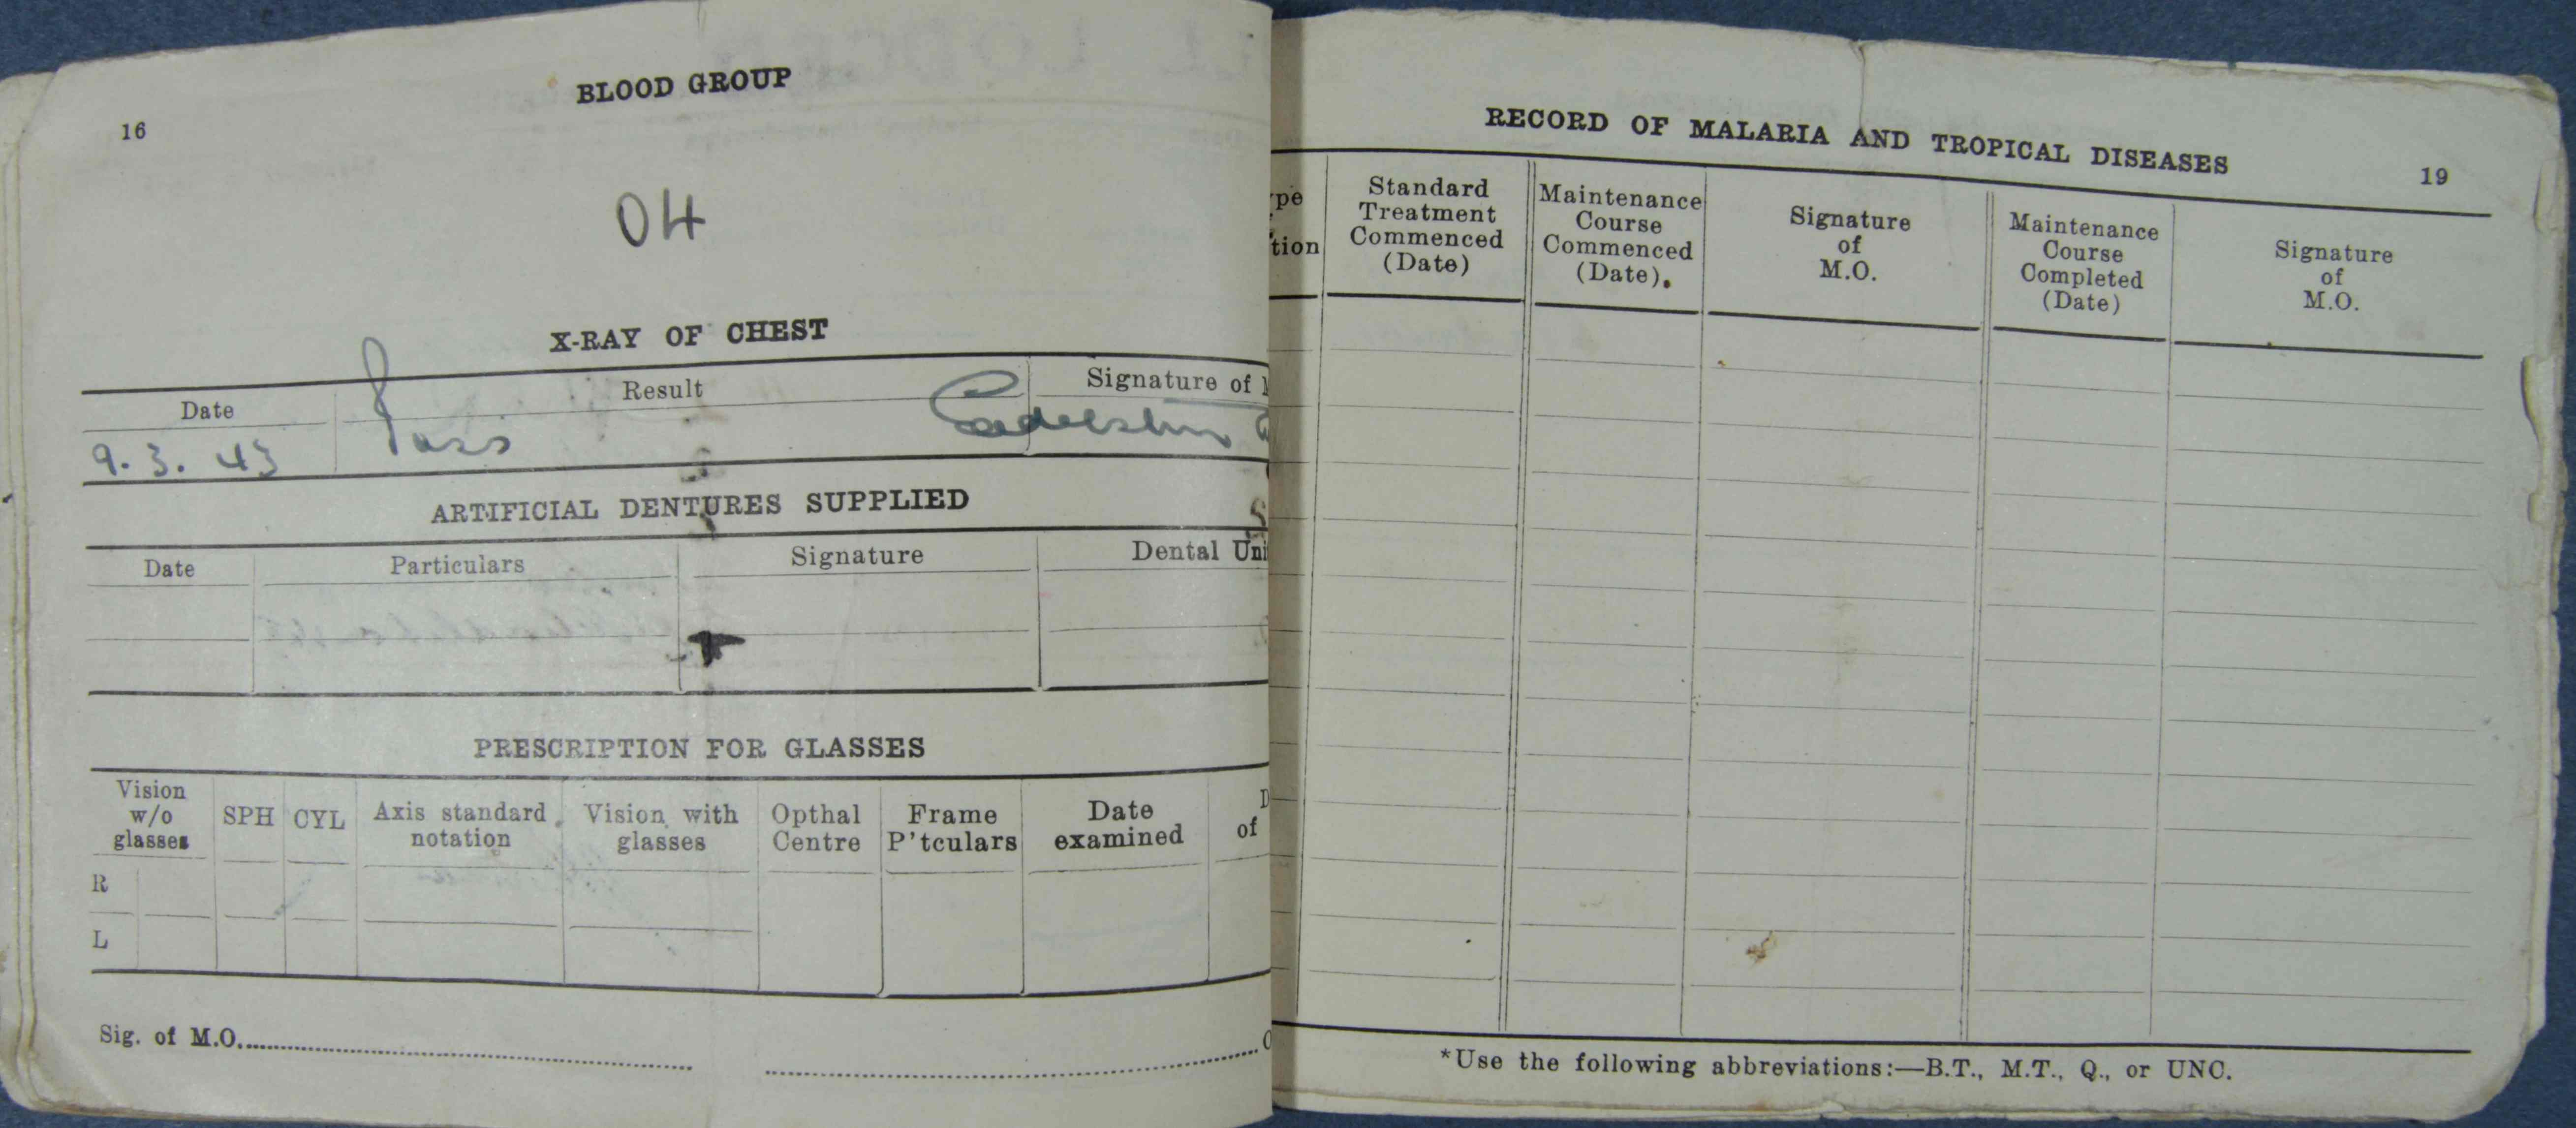 BLOOD GROUP
16
O4
X-RAY OF CHEST
Date Result Signature of
9. 3. 43 Pass
ARTIFICIAL DENTURES SUPPLIED
Date Particulars Signature Dental Uni
PRESCRIPTION FOR GLASSES
Vision w/o glasses SPH CYL Axis standard notation Vision with glasses Opthal Centre Frame P'tculars Date examined of
R
L
Sig. of M.O.
RECORD OF MALARIA AND TROPICAL DISEASES
19
ype
tion
Standard
Treatment
Commenced
(Date)
Maintenance
Course
Commenced
(Date).
Signature
of
M.O.
Maintenance
Course
Completed
(Date)
Signature
of
M.O.
*Use the following abbreviations:—B.T., M.T., Q., or UNC.